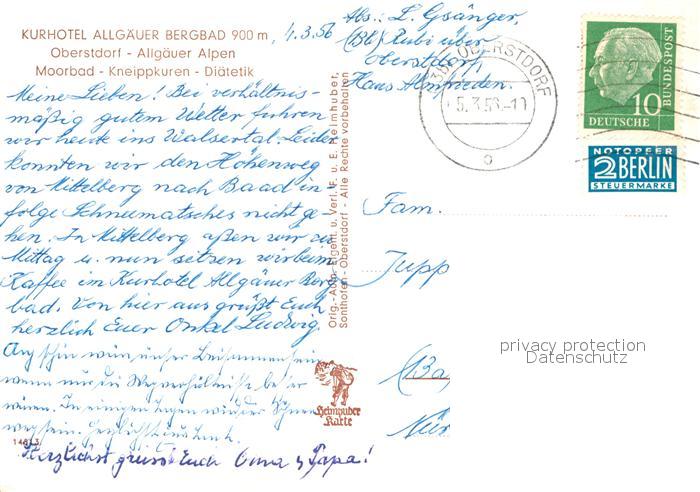 KURHOTEL ALLGÄUER BERGBAD 900 m, 4.3.56
Oberstdorf - Allgäuer Alpen
Moorbad - Kneippkuren - Diätetik
Meine Lieben! Bei verhältnis-
mäßig gutem Wetter fuhren
wir heute ins Walsertal. Leider
konnten wir den Höhenweg
von Mittelberg nach Baad in-
folge Schneematsches nicht ge-
hen. In Mittelberg aßen wir zu
Mittag u. nun sitzen wir beim
Kaffee im Kurhotel Allgäuer Berg
bad. Von hier aus grüßt Euch
herzlich Euer Onkel Ludwig.
wenn nur die Wegverhältnisse besser
wären. In einigen Tagen wird der Schnee
weg sein.
14613
Herzlichst grüsst Euch Oma u. Papa!
Orig.-Aufn. Eigent. u. Verl. F. u. E. Heimhuber,
Sonthofen-Oberstdorf - Alle Rechte vorbehalten
Heimhuber
Karte
Abs.: L. Gsänger,
(13b) Rubi über
Oberstdorf,
Haus
OBERSTDORF
5.3.56.-11
10
DEUTSCHE
BUNDESPOST
NOTOPFER
2 BERLIN
STEUERMARKE
Fam.
Jupp
privacy protection
Datenschutz